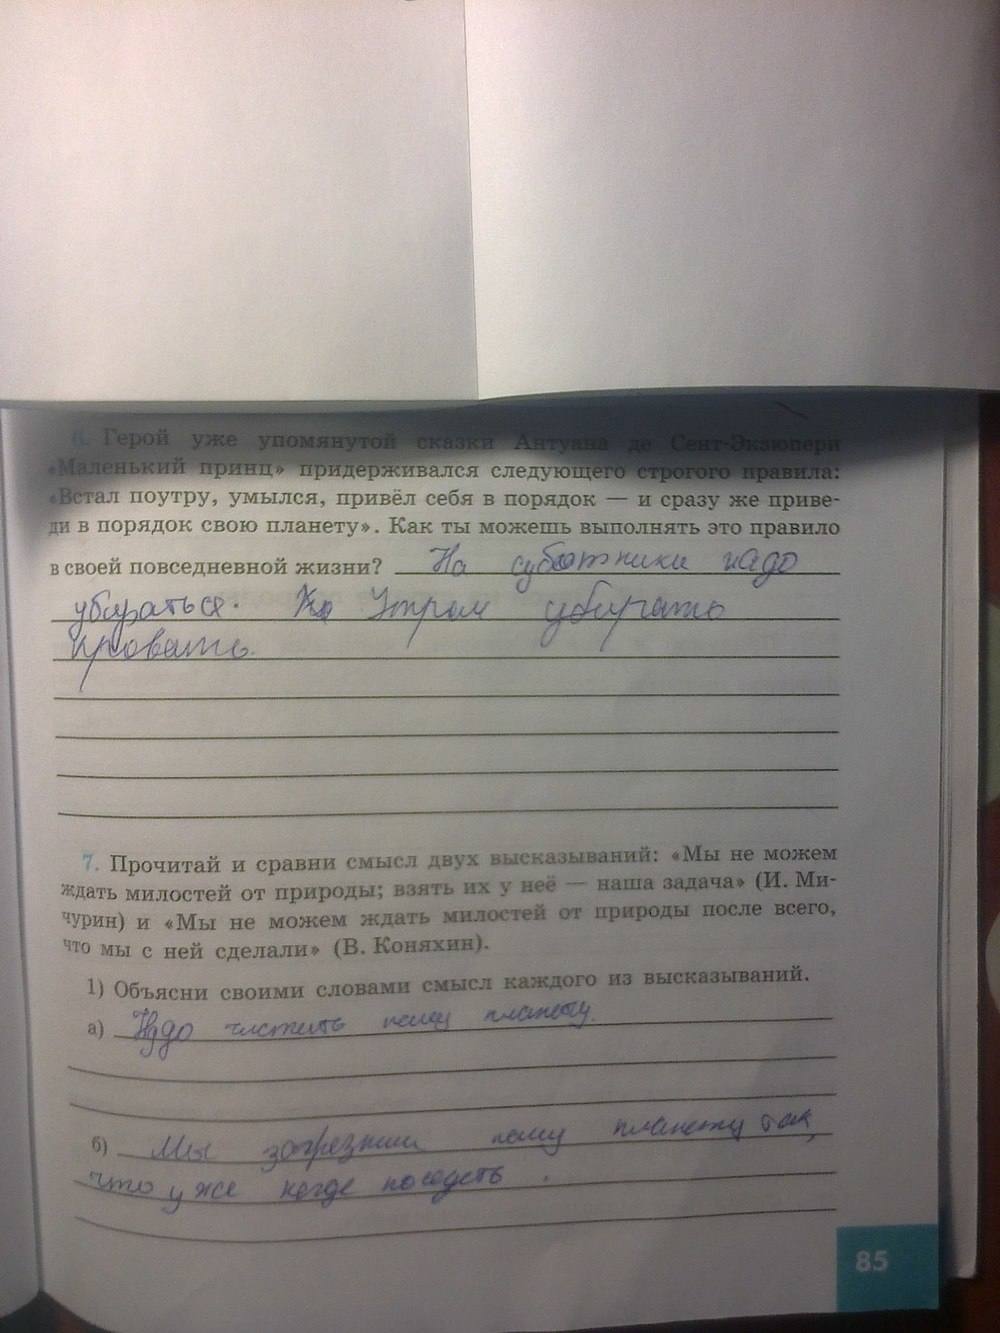 6. Герой уже упомянутой сказки Антуана де Сент-Экзюпери
«Маленький принц» придерживался следующего строгого правила:
«Встал поутру, умылся, привёл себя в порядок — и сразу же приве-
ди в порядок свою планету». Как ты можешь выполнять это правило
в своей повседневной жизни? На суботники надо
убираться. Утром убирать
кровать.
7. Прочитай и сравни смысл двух высказываний: «Мы не можем
ждать милостей от природы; взять их у неё — наша задача» (И. Ми-
чурин) и «Мы не можем ждать милостей от природы после всего,
что мы с ней сделали» (В. Коняхин).
1) Объясни своими словами смысл каждого из высказываний.
а) Надо чистить нашу планету.
б) Мы загрезнили нашу планету так,
что уже негде посидеть.
85